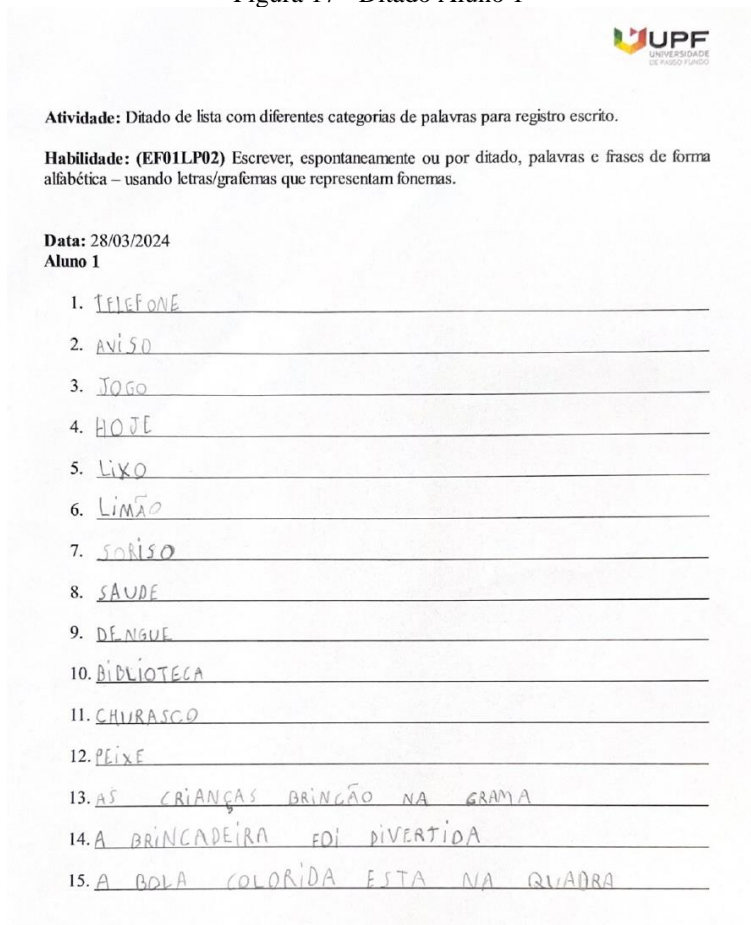 Figura 17 - Ditado Aluno 1
UPF
UNIVERSIDADE
DE PASSO FUNDO
Atividade: Ditado de lista com diferentes categorias de palavras para registro escrito.
Habilidade: (EF01LP02) Escrever, espontaneamente ou por ditado, palavras e frases de forma
alfabética – usando letras/grafemas que representam fonemas.
Data: 28/03/2024
Aluno 1
1. TELEFONE
2. AViSO
3. JOGO
4. HOJE
5. LiXO
6. LiMÃO
7. SORiSO
8. SAUDE
9. DENGUE
10. BiBLiOTECA
11. CHURASCO
12. PEiXE
13. AS CRiANÇAS BRiNCÃO NA GRAMA
14. A BRiNCADEiRA FOi DiVERTiDA
15. A BOLA COLORiDA ESTA NA QUADRA